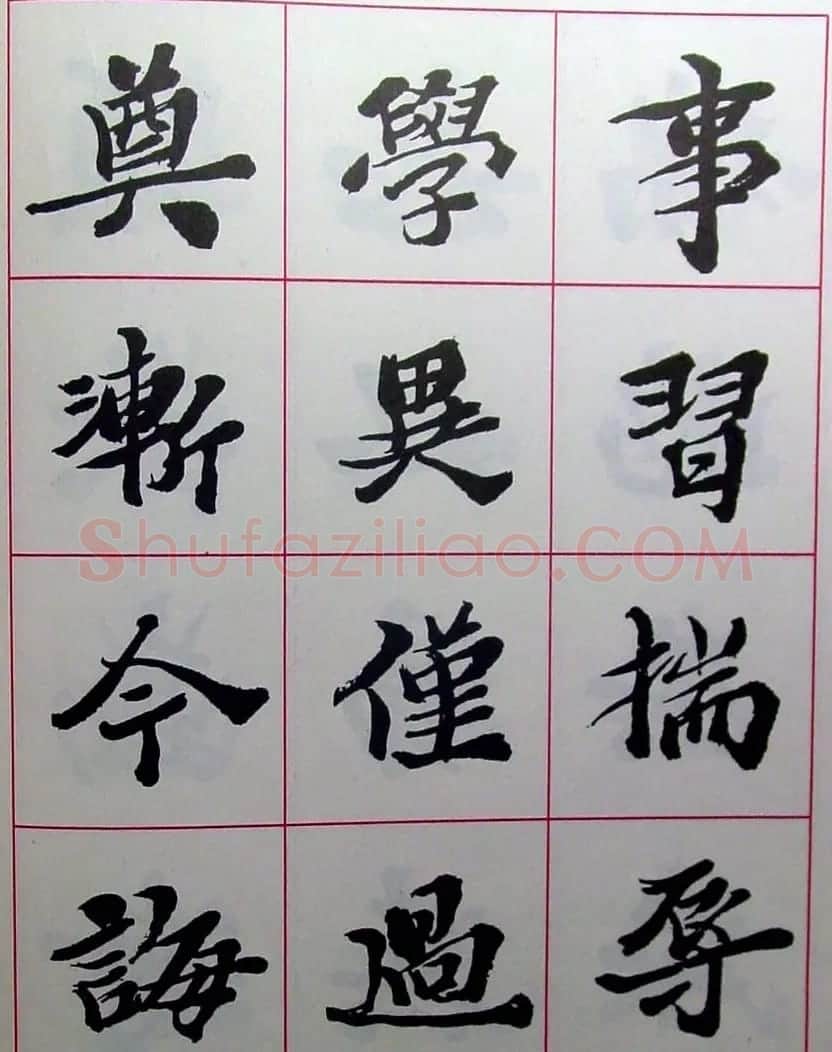 事習揣辱
學異僅過
奠漸今誨
Shufaziliao.COM